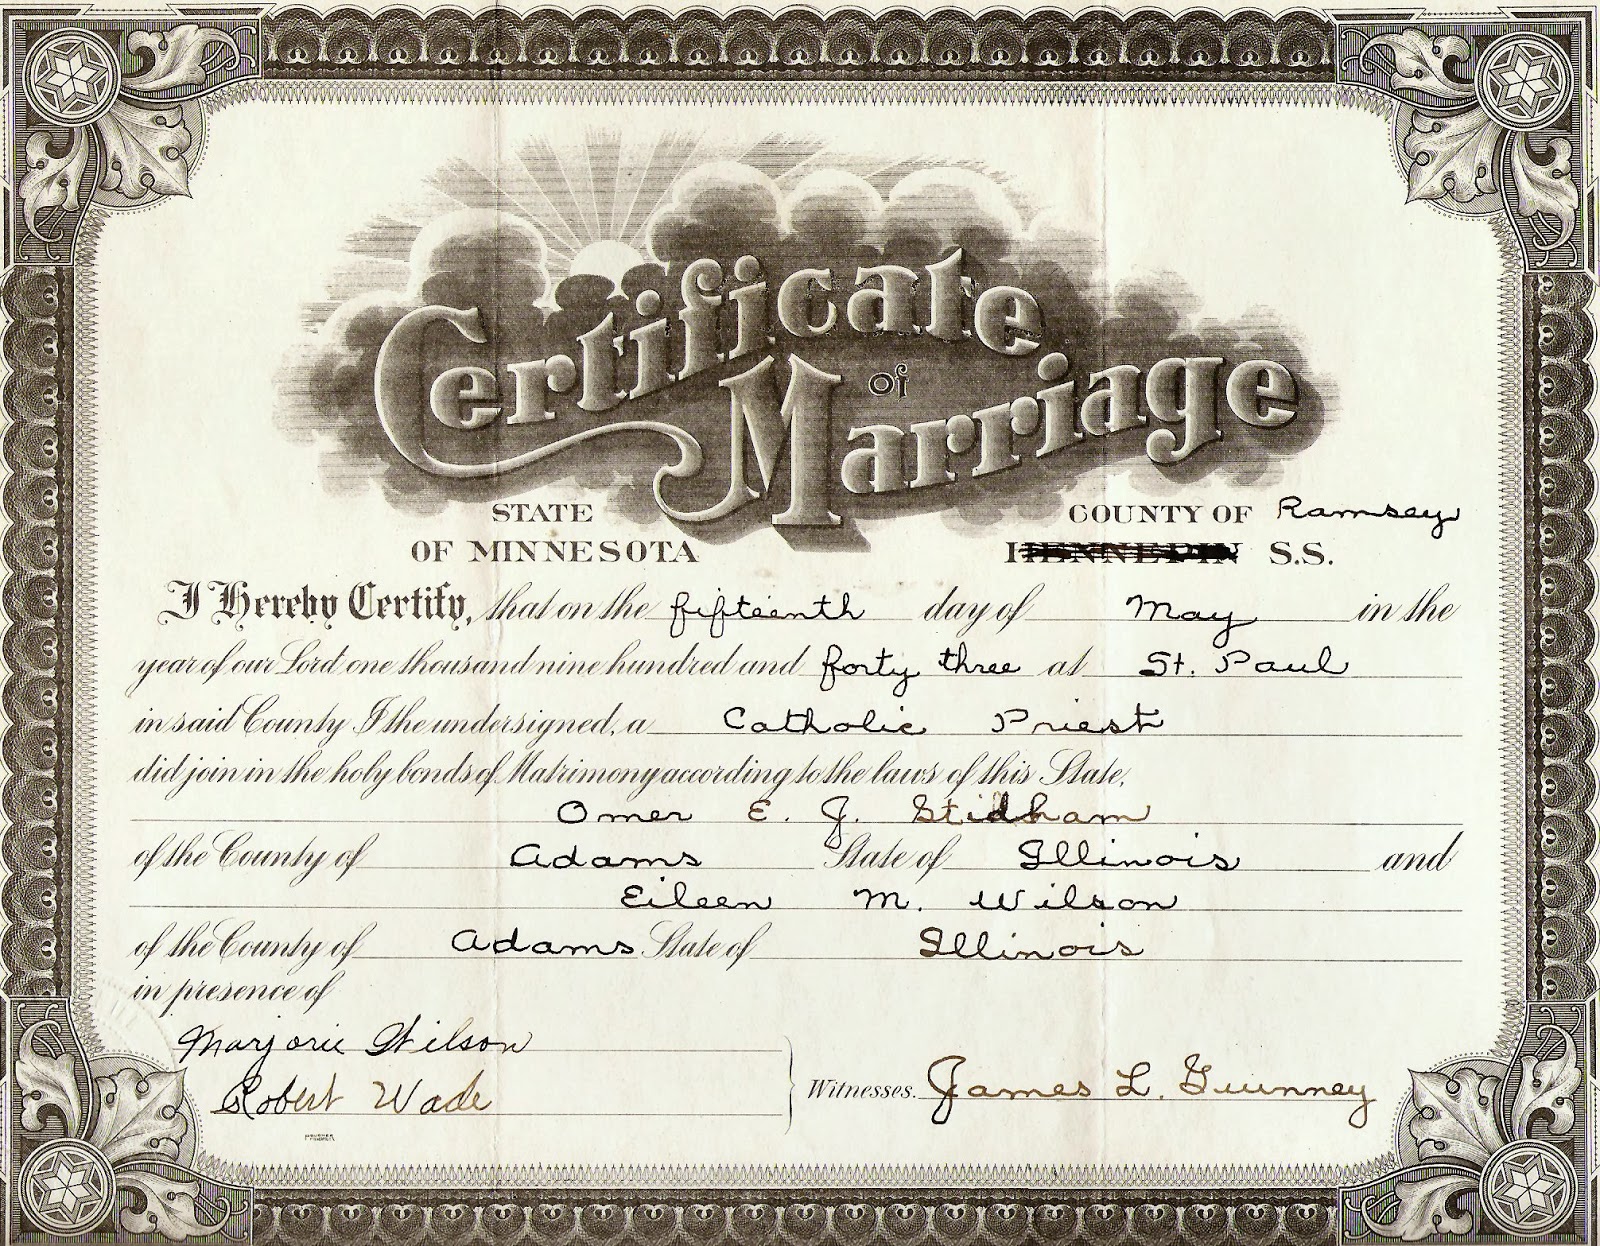 Certificate
of
Marriage
STATE
OF MINNESOTA
COUNTY OF Ramsey
HENNEPIN S.S.
I Hereby Certify, that on the fifteenth day of May in the
year of our Lord one thousand nine hundred and forty three at St. Paul
in said County I the undersigned, a Catholic Priest
did join in the holy bonds of Matrimony according to the laws of this State,
Omer E. J. Stidham
of the County of Adams State of Illinois and
Eileen M. Wilson
of the County of Adams State of Illinois
in presence of
Marjorie Wilson
Robert Wade
Witnesses. James L.